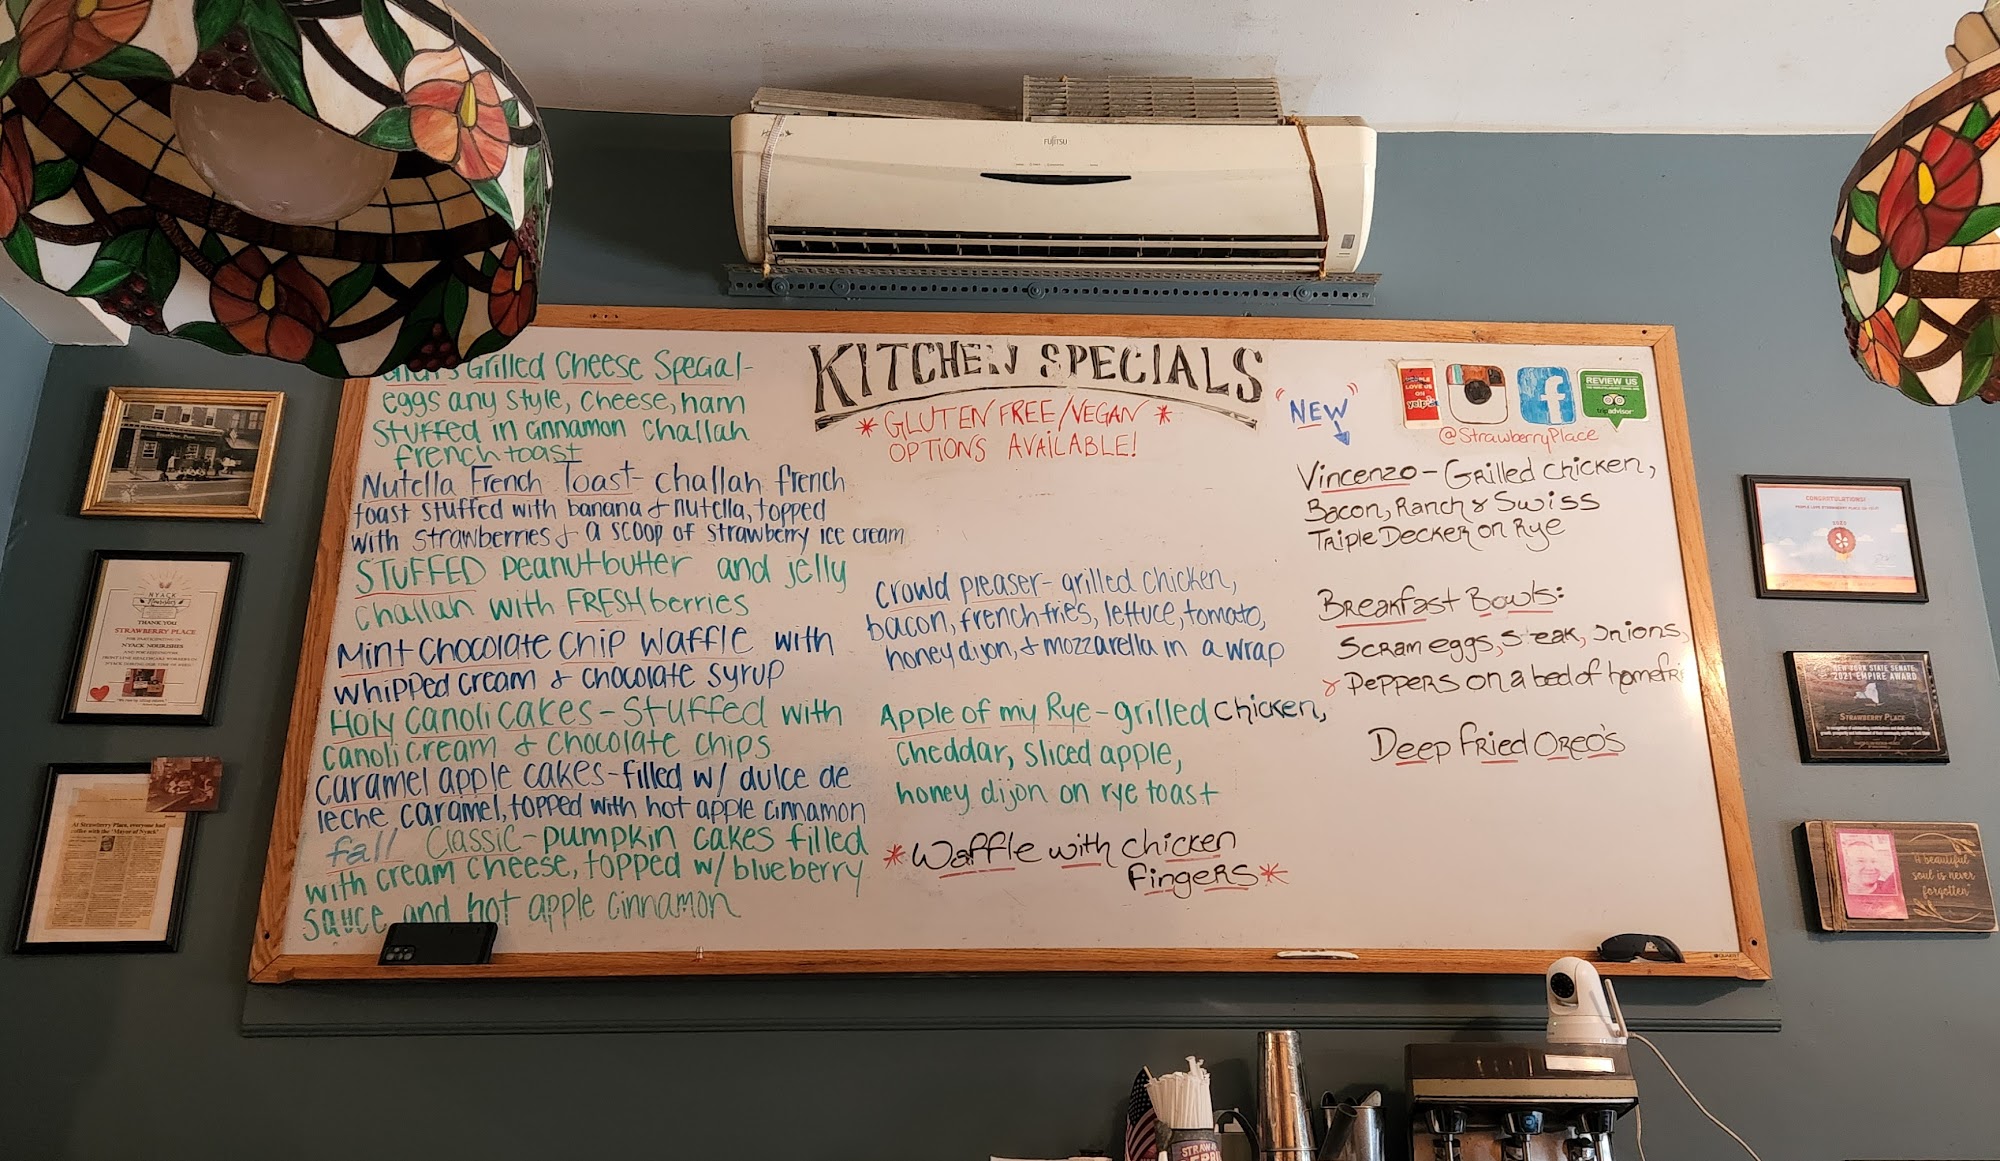 FUJITSU
KITCHEN SPECIALS
* GLUTEN FREE/VEGAN *
OPTIONS AVAILABLE!
Grilled Cheese Special-
eggs any style, cheese, ham
stuffed in cinnamon challah
french toast
Nutella French Toast- challah french
toast stuffed with banana & nutella, topped
with strawberries & a scoop of strawberry ice cream
STUFFED peanutbutter and jelly
challah with FRESH berries
Mint Chocolate Chip Waffle with
whipped cream & chocolate syrup
Holy Canoli Cakes - Stuffed with
canoli cream & chocolate chips
Caramel apple cakes-filled w/ dulce de
leche caramel, topped with hot apple cinnamon
fall Classic-pumpkin cakes filled
with cream cheese, topped w/ blueberry
sauce and hot apple cinnamon
crowd pleaser- grilled chicken,
bacon, french fries, lettuce, tomato,
honey dijon, & mozzarella in a wrap
Apple of my Rye - grilled chicken,
cheddar, sliced apple,
honey dijon on rye toast
* Waffle with chicken
fingers *
"NEW"
PEOPLE
LOVE US
ON
yelp
REVIEW US
tripadvisor
@StrawberryPlace
Vincenzo - Grilled chicken,
Bacon, Ranch & Swiss
Triple Decker on Rye
Breakfast Bowls:
Scram eggs, steak, onions,
& Peppers on a bed of homefri
Deep Fried Oreo's
NYACK
Nourishes
THANK YOU
STRAWBERRY PLACE
FOR PARTICIPATING IN
NYACK NOURISHES
At Strawberry Place, everyone had
coffee with the 'Mayor of Nyack'
CONGRATULATIONS!
PEOPLE LOVE STRAWBERRY PLACE ON YELP
NEW YORK STATE SENATE
2021 EMPIRE AWARD
STRAWBERRY PLACE
A beautiful
soul is never
forgotten